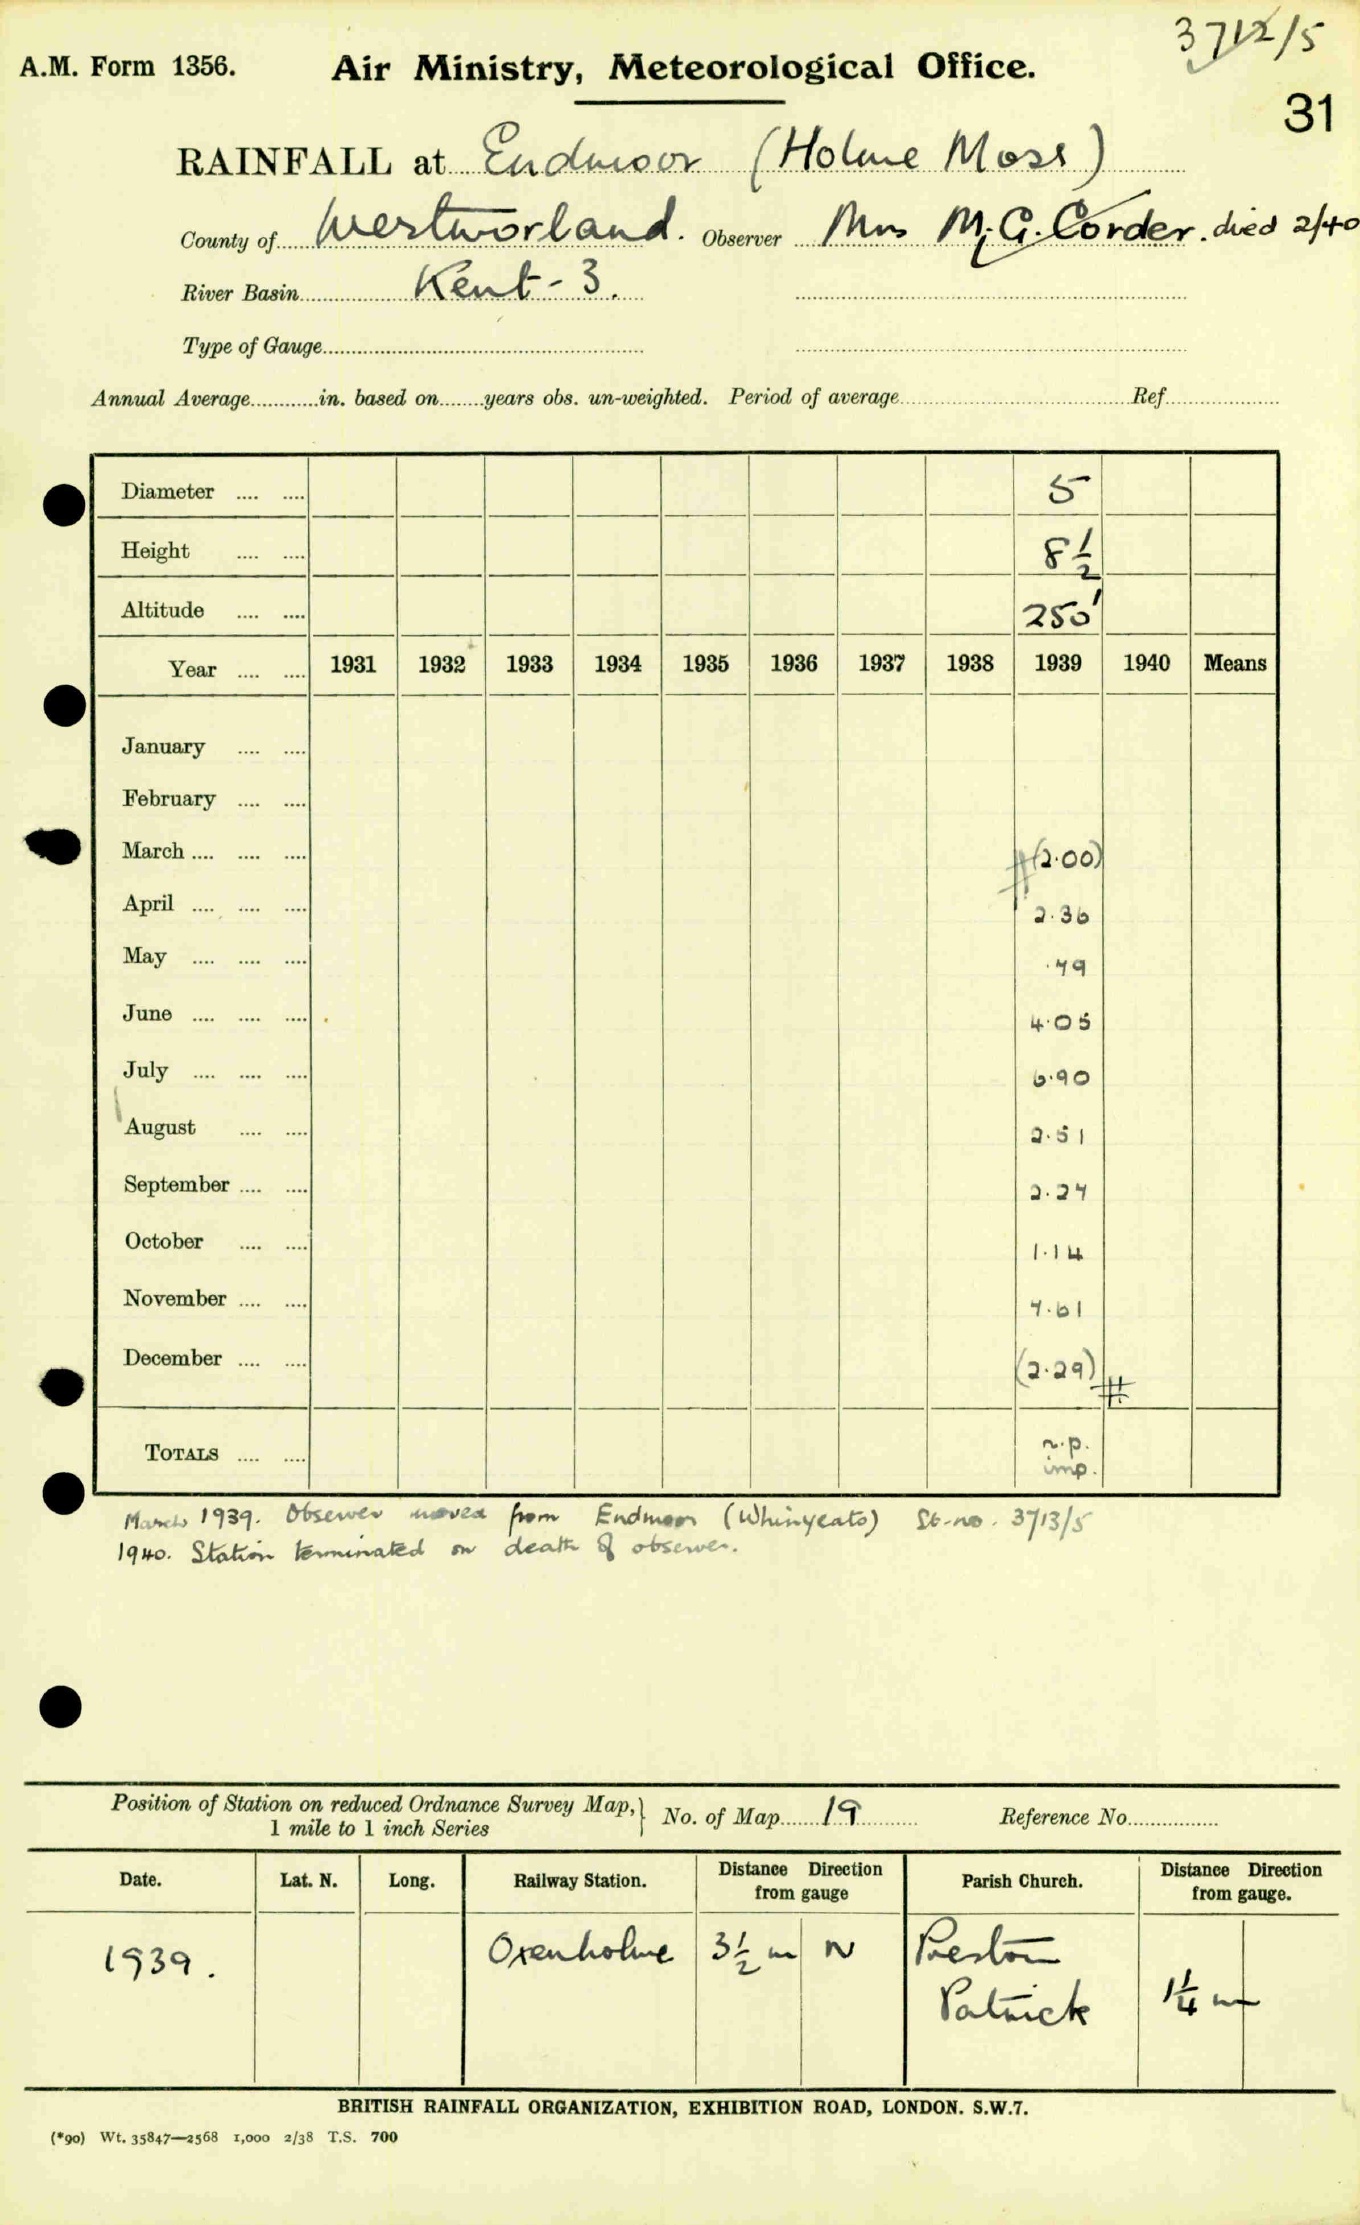 3712/5
A.M. Form 1356. Air Ministry, Meteorological Office.
31
RAINFALL at Endmoor (Holme Moss)
County of Westmorland. Observer Mrs M.G. Corder. died 2/40
River Basin Kent - 3.
Type of Gauge
Annual Average in. based on years obs. un-weighted. Period of average Ref
Diameter 5
Height 8 1/2
Altitude 250'
Year 1931 1932 1933 1934 1935 1936 1937 1938 1939 1940 Means
January
February
March (2.00)
April 2.36
May .49
June 4.05
July 6.90
August 2.51
September 2.24
October 1.14
November 7.61
December (2.29) #
TOTALS n.p.
imp.
March 1939. Observer moved from Endmoor (Whinyeats) St. no. 3713/5
1940. Station terminated on death of observer.
Position of Station on reduced Ordnance Survey Map, 1 mile to 1 inch Series } No. of Map 19 Reference No.
Date. Lat. N. Long. Railway Station. Distance Direction from gauge Parish Church. Distance Direction from gauge.
1939. Oxenholme 3 1/2 m N Preston Patrick 1 1/4 m
BRITISH RAINFALL ORGANIZATION, EXHIBITION ROAD, LONDON. S.W.7.
(*90) Wt. 35847—2568 1,000 2/38 T.S. 700